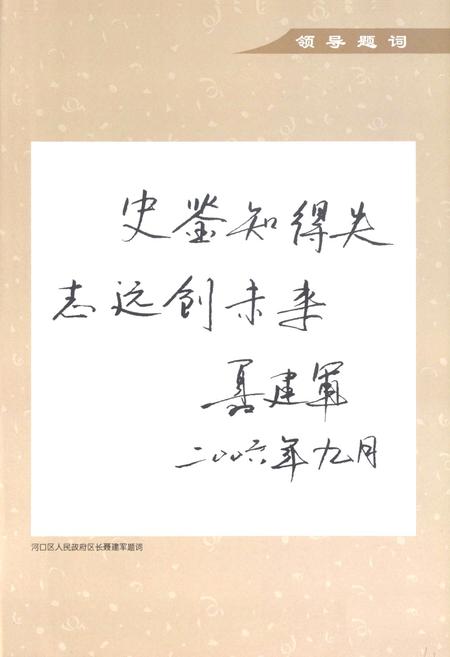 领导题词
史鉴知得失
志远创未来
聂建军
二〇〇六年九月
河口区人民政府区长聂建军题词